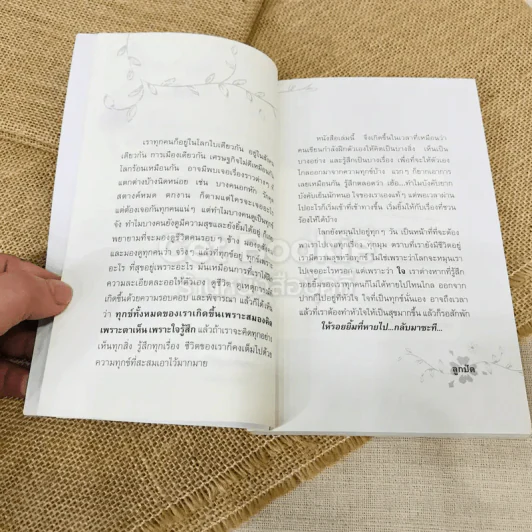 เราทุกคนก็อยู่ในโลกใบเดียวกัน อยู่ในสังคม
เดียวกัน การเมืองเดียวกัน เศรษฐกิจไม่ดีเหมือนกัน
โลกร้อนเหมือนกัน อาจมีพบเจอเรื่องราวต่างๆ
แตกต่างบ้างนิดหน่อย เช่น บางคนอกหัก
สตางค์หมด ตกงาน ก็ตามแต่ใครจะเจออะไร
แต่ต้องเจอกันทุกคนแน่ๆ แต่ทำไมบางคนดูเป็นทุกข์
จัง ทำไมบางคนยังดูมีความสุขและยังยิ้มได้อยู่
พยายามที่จะมองดูชีวิตคนรอบๆ ข้าง มองดูสังคม
และมองดูทุกคน แล้วทำให้
อะไร ที่สุขอยู่เพราะอะไร มันเหมือนการที่เราได้
ความละเอียดละออให้ตัวเอง ดูเหตุการณ์
เกิดขึ้นด้วยความรอบคอบ และพิจารณา แล้วก็ได้เห็น
ว่า ทุกข์ทั้งหมดของเราเกิดขึ้นเพราะสมองคิด
เพราะตาเห็น เพราะใจรู้สึก แล้วถ้าเราจะคิดทุกอย่าง
เห็นทุกสิ่ง รู้สึกทุกเรื่อง ชีวิตของเราก็คงเต็มไปด้วย
ความทุกข์ที่สะสมเอาไว้มากมาย
หนังสือเล่มนี้ จึงเกิดขึ้นในเวลาที่เหมือนว่า
คนเขียนกำลังฝึกตัวเองให้คิดเป็นบางสิ่ง เห็นเป็น
บางอย่าง และรู้สึกเป็นบางเรื่อง เพื่อที่จะให้ตัวเอง
ไกลออกมาจากความทุกข์บ้าง แรกๆ ก็ยากเอาการ
เลยเหมือนกัน รู้สึกตลอดว่า เฮ้อ...ทำไมบังคับยาก
บังคับเย็นนักหนอ ใจของเราเองแท้ๆ แต่พอเวลาผ่าน
ไปอะไรก็เริ่มเข้าที่เข้าทางขึ้น เริ่มยิ้มให้กับเรื่องที่ชวน
ร้องไห้ได้บ้าง
โลกยังหมุนไปอยู่ทุกๆ วัน เป็นหน้าที่ที่จะต้อง
พาเราไปเจอเรื่อง ทุกมุม ตราบที่เรายังมีชีวิตอยู่
มีความสุขหรือทุกข์ ไม่ใช่เพราะว่าโลกจะหมุนเรา
ไปเจออะไรหรอก แต่เพราะว่า ใจ เราต่างหากที่รู้สึก
คนทั้ง ให้ไปไหนไกล ออกจาก
ปากก็ไปอยู่ที่หัวใจ ใจที่เป็นทุกข์นั่นเอง อาจถึงเวลา
แล้วที่เราต้องทำหัวใจให้เป็นสุขมากขึ้น แล้วก็รอสักพัก
ให้รอยยิ้มที่หายไป...กลับมาซะที...
ลูกปัด